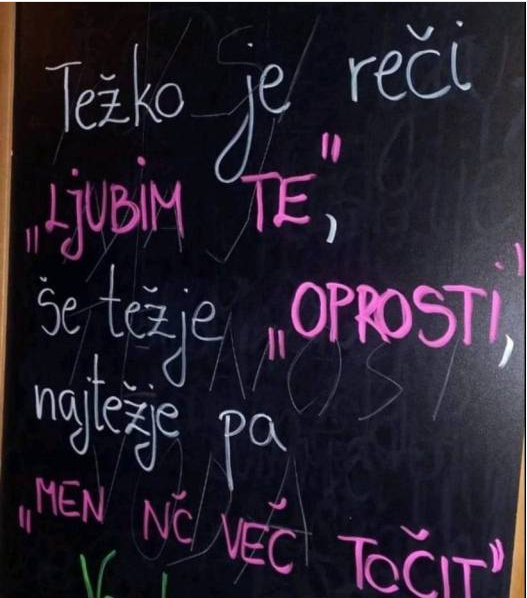 Težko je reči
„LJUBIM TE",
še težje „OPROSTI",
najtežje pa
„MEN NČ VEČ TOČIT"